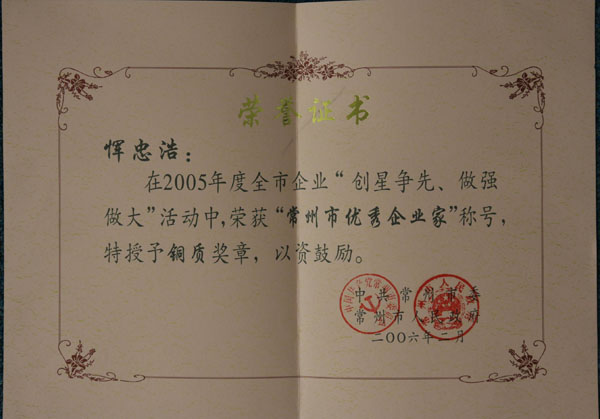 荣誉证书
恽忠浩：
在2005年度全市企业“创星争先、做强
做大”活动中，荣获“常州市优秀企业家”称号，
特授予铜质奖章，以资鼓励。
中共常州市委
常州市人民政府
二〇〇六年二月